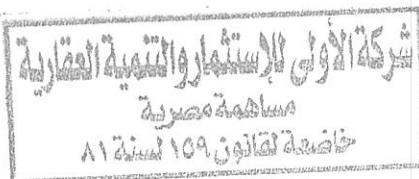 شركة الأولى للإستثمار والتنمية العقارية
مساهمة مصرية
خاضعة لقانون ١٥٩ لسنة ٨١